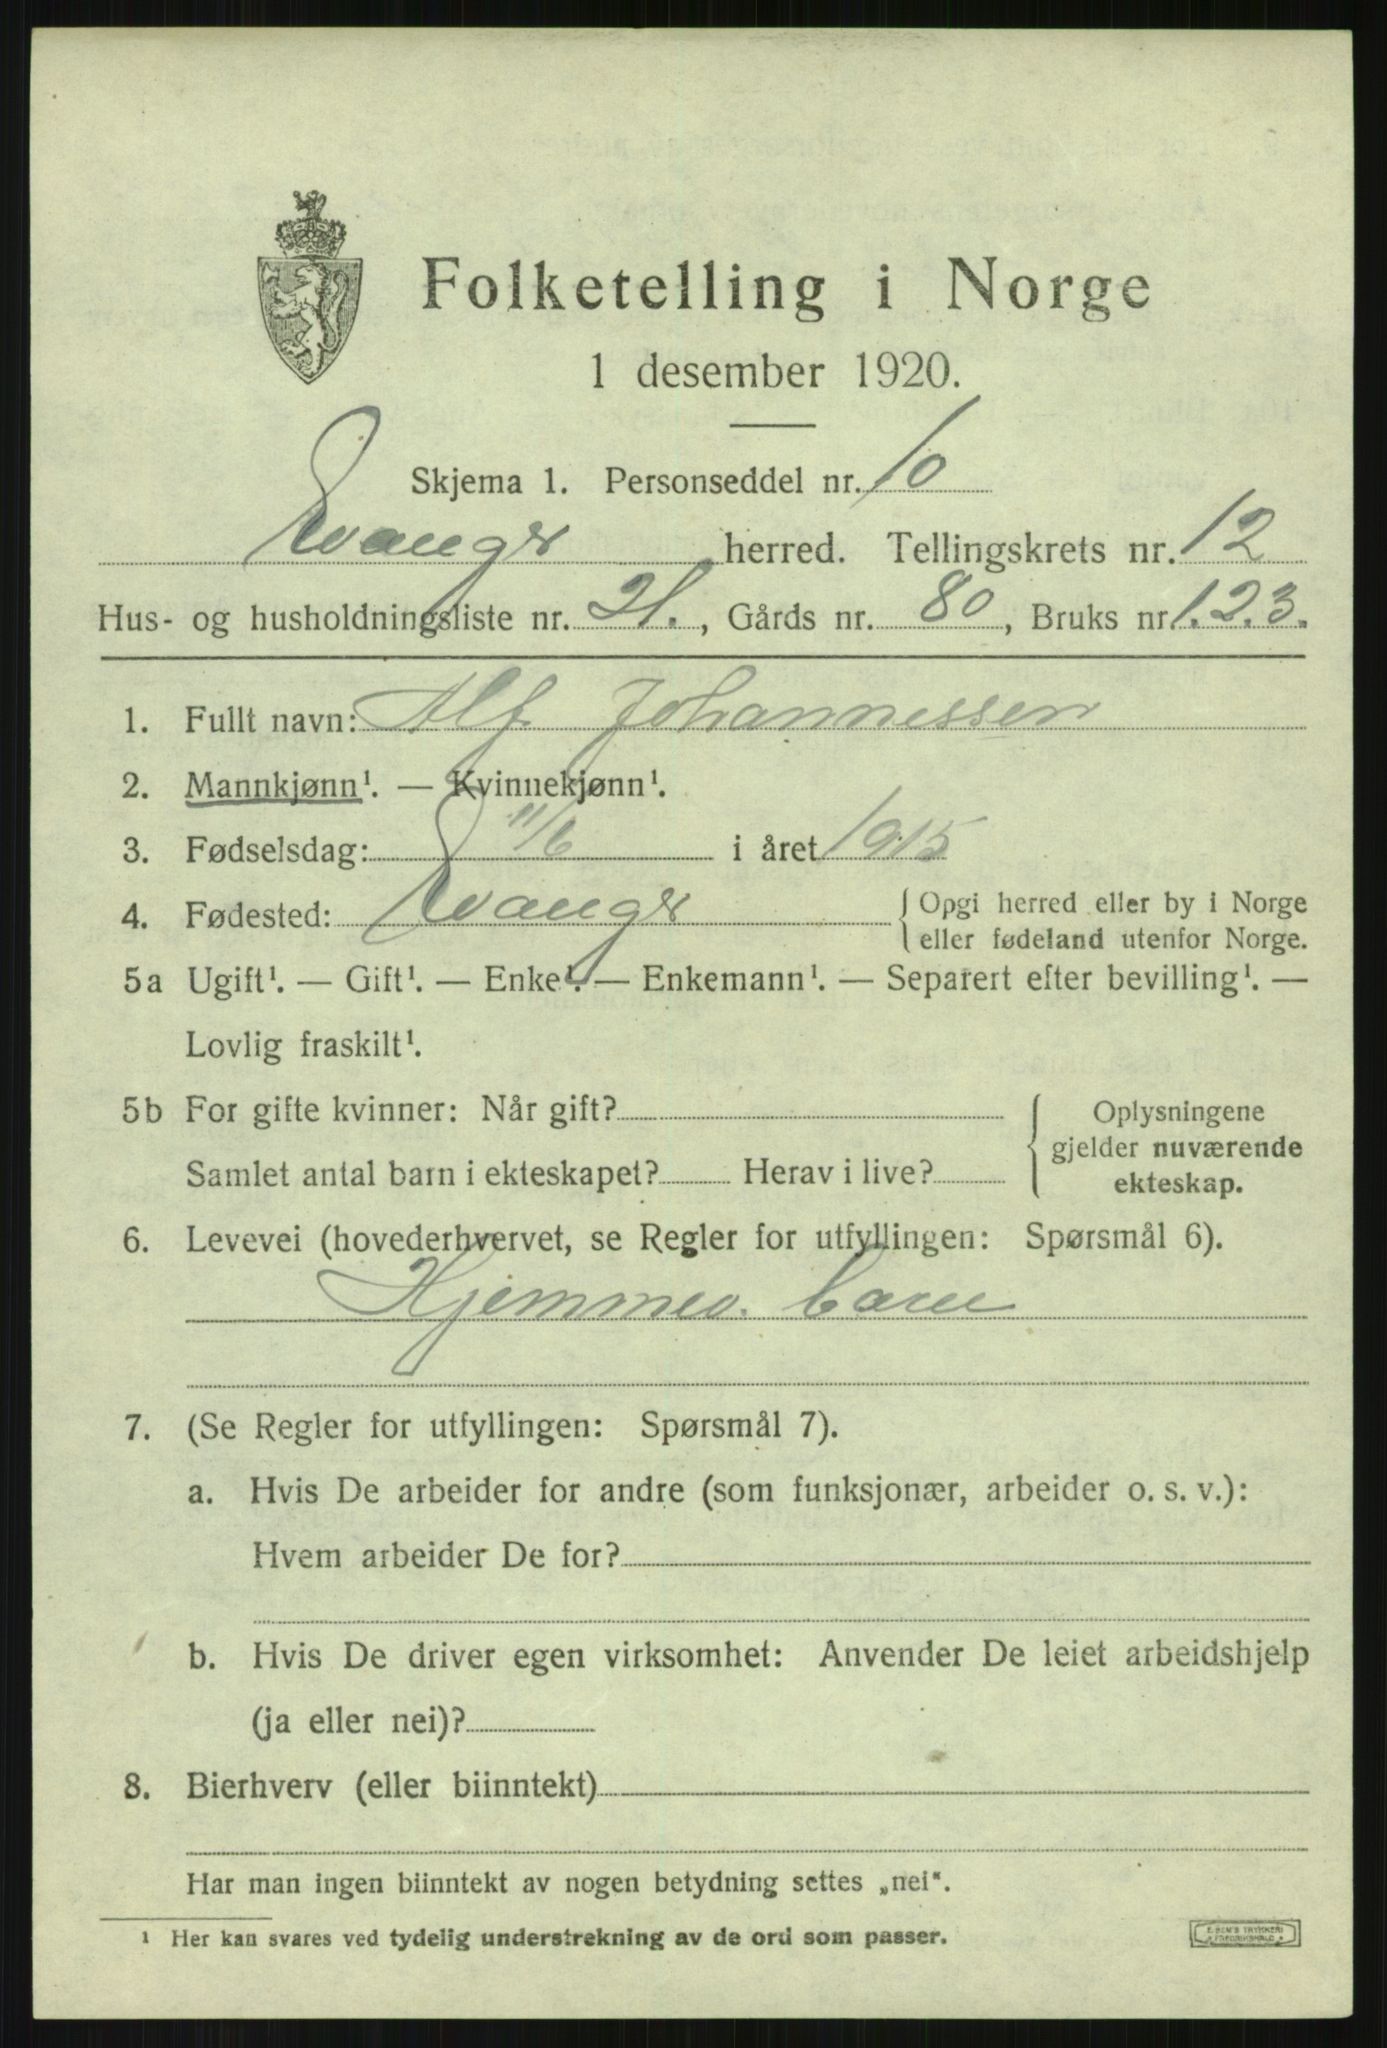 Folketelling i Norge
1 desember 1920.
Skjema 1. Personseddel nr. 10
Evanger herred. Tellingskrets nr. 12
Hus- og husholdningsliste nr. 21., Gårds nr. 80, Bruks nr. 1.2.3.
1. Fullt navn: Alf Johannessen
2. Mannkjønn¹. — Kvinnekjønn¹.
3. Fødselsdag: 11/6 i året 1915
4. Fødested: Evanger { Opgi herred eller by i Norge
eller fødeland utenfor Norge.
5a Ugift¹. — Gift¹. — Enke¹. — Enkemann¹. — Separert efter bevilling¹. —
Lovlig fraskilt¹.
5b For gifte kvinner: Når gift? { Oplysningene
gjelder nuværende
Samlet antal barn i ekteskapet? Herav i live? ekteskap.
6. Levevei (hovederhvervet, se Regler for utfyllingen: Spørsmål 6).
Hjemmev. barn
7. (Se Regler for utfyllingen: Spørsmål 7).
a. Hvis De arbeider for andre (som funksjonær, arbeider o. s. v.):
Hvem arbeider De for?
b. Hvis De driver egen virksomhet: Anvender De leiet arbeidshjelp
(ja eller nei)?
8. Bierhverv (eller biinntekt)
Har man ingen biinntekt av nogen betydning settes „nei“.
¹ Her kan svares ved tydelig understrekning av de ord som passer.
E. SEM'S TRYKKERI
FREDRIKSHALD